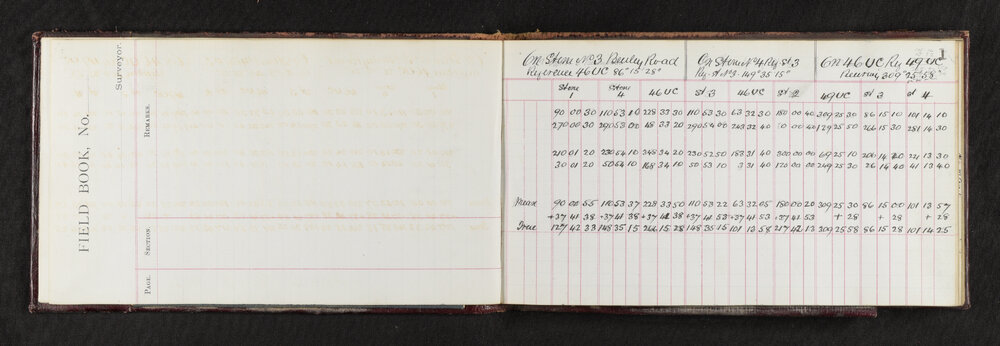 FIELD BOOK, No.
Surveyor.
REMARKS.
SECTION.
PAGE.
1
On Stone No 3 Bailey Road
Reference 46 UC 86° 15' 28"
On Stone No 4 Ry St 3
Ry. St No 3. 149° 35' 15"
On 46 UC Ry 49 UC
309° 25' 58"
Stone 1 Stone 4 46 UC St 3 46 UC St 2 49 UC St 3 St 4
90 00 30 110 53 10 228 33 30 110 53 30 63 32 30 180 00 40 309 25 30 86 15 10 101 14 10
270 00 30 290 53 00 48 33 20 290 54 00 243 32 40 0 00 40 129 25 50 266 15 30 281 14 30
210 01 20 230 54 10 348 34 20 230 52 50 183 31 40 300 00 00 69 25 10 206 14 20 221 13 30
30 01 20 50 54 10 168 34 10 50 53 10 3 31 40 120 00 00 249 25 30 26 14 40 41 13 40
Mean 90 00 55 110 53 37 228 33 50 110 53 22 63 32 05 180 00 20 309 25 30 86 15 00 101 13 57
+37 41 38 +37 41 38 +37 41 38 +37 41 53 +37 41 53 +37 41 53 + 28 + 28 + 28
True 127 42 33 148 35 15 266 15 28 148 35 15 101 13 58 217 42 13 309 25 58 86 15 28 101 14 25